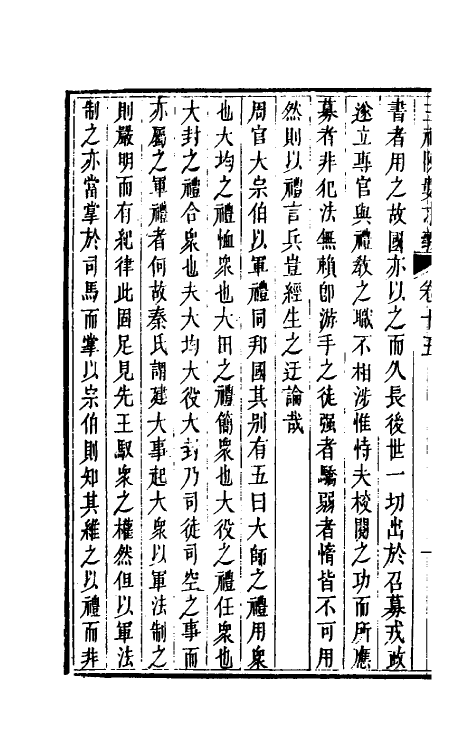 三禮陳數求義 卷十五
書者用之故國亦以之而久長後世一切出於召募戎政
遂立專官與禮教之職不相涉惟恃夫校閱之功而所應
募者非犯法無賴即游手之徒强者驕弱者惰皆不可用
然則以禮言兵豈經生之迂論哉
周官大宗伯以軍禮同邦國其别有五曰大師之禮用衆
也大均之禮恤衆也大田之禮簡衆也大役之禮任衆也
大封之禮合衆也夫大均大役大封乃司徒司空之事而
亦屬之軍禮者何故秦氏謂建大事起大衆以軍法制之
則嚴明而有紀律此固足見先王馭衆之權然但以軍法
制之亦當掌於司馬而掌以宗伯則知其維之以禮而非